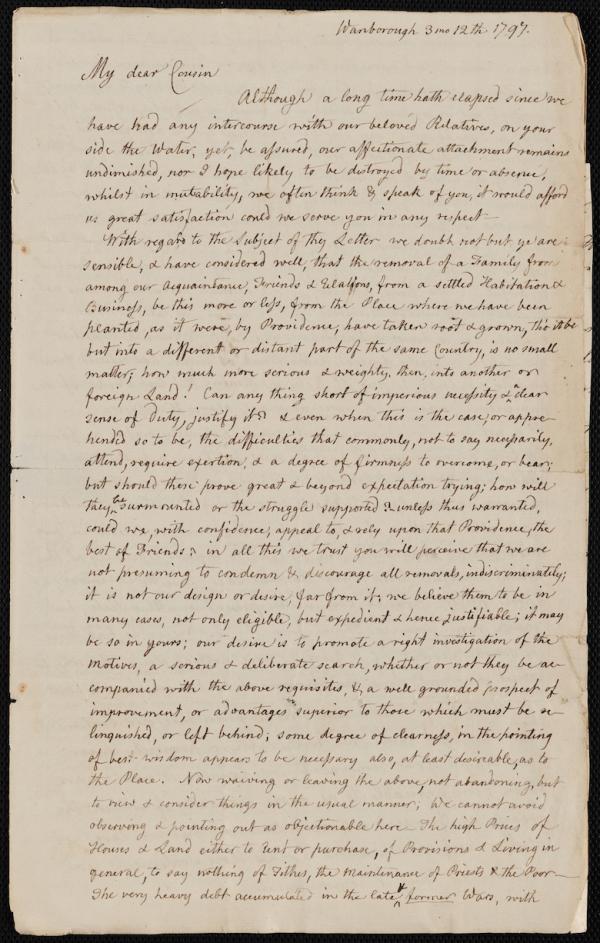 Wanborough 3mo 12th 1797.
My dear Cousin
Although a long time hath elapsed since we
have had any intercourse with our beloved Relatives, on your
side the Water; yet, be assured, our affectionate attachment remains
undiminished, nor I hope likely to be distroyed by time or absence,
whilst in mutability, we often think & speak of you, it would afford
us great satisfaction could we serve you in any respect—
With regard to the Subject of thy Letter we doubt not but ye are
sensible, & have considered well, that the removal of a Family from
among our Acquaintance, Friends & Relations, from a settled Habitation &
Business, be this more or less, & from the Place where we have been
planted, as it were, by Providence, have taken root & grown, tho' it be
but into a different or distant part of the same Country, is no small
matter; how much more serious & weighty then, into another or
foreign Land! Can any thing short of imperious necessity or a clear
sense of Duty, justify it? & even when this is the case, or appre-
hended so to be, the difficulties that commonly, not to say necessarily,
attend, require exertion, & a degree of firmness to overcome, or bear;
but should these prove great & beyond expectation trying; how will
they be surmounted or the struggle supported & unless thus warranted,
could we, with confidence, appeal to, & rely upon that Providence, the
best of Friends? in all this we trust you will perceive that we are
not presuming to condemn & discourage all removals, indiscriminately;
it is not our design or desire, far from it; we believe them to be in
many cases, not only eligible, but expedient & hence justifiable; it may
be so in yours; our desire is to promote a right investigation of the
Motives, a serious & deliberate search, whether or not they be ac-
companied with the above requisites, & a well grounded prospect of
improvement, or advantages superior to those which must be re-
linquished, or left behind; some degree of clearness, in the pointing
of best wisdom appears to be necessary also, at least desireable, as to
the Place. Now waiving or leaving the above, not abandoning, but
to view & consider things in the usual manner; We cannot avoid
observing & pointing out as objectionable here The high Prices of
Houses & Land either to Rent or purchase, of Provisions & Living in
general, to say nothing of Tithes, the Maintenance of Priests & the Poor—
The very heavy debt accumulated in the late & former Wars, with